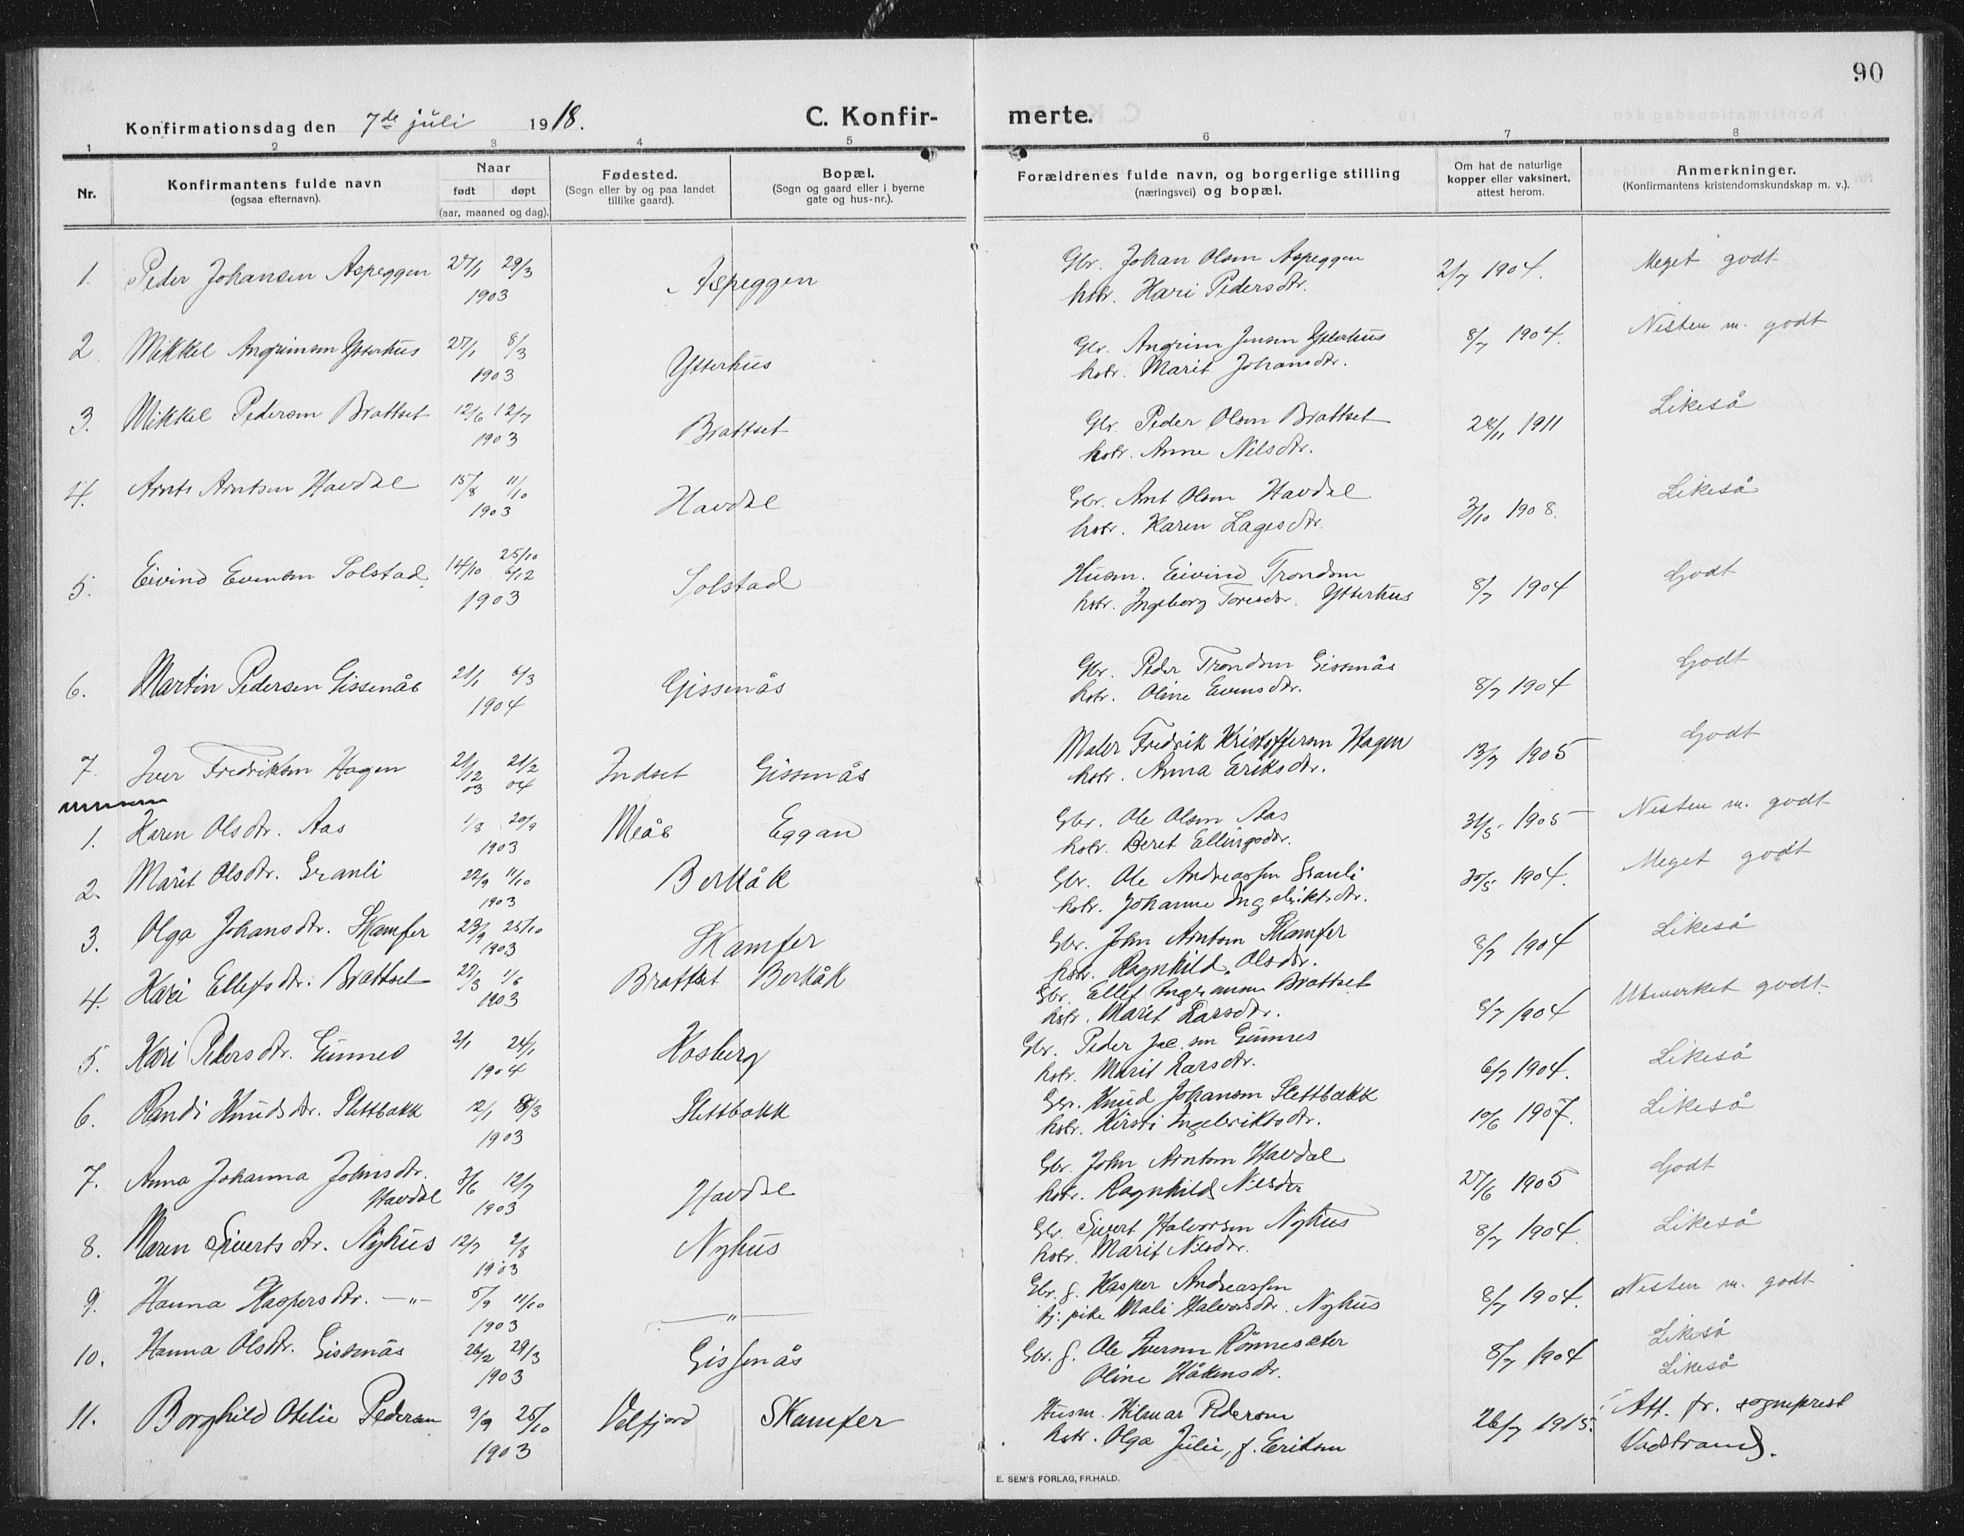 90
Konfirmationsdag den 7de juli 1918.
C. Konfir- merte.
1 2 3 4 5 6 7 8
Nr.
Konfirmantens fulde navn
(ogsaa efternavn).
Naar
født døpt
(aar, maaned og dag).
Fødested.
(Sogn eller by og paa landet
tillike gaard).
Bopæl.
(Sogn og gaard eller i byerne
gate og hus-nr.).
Forældrenes fulde navn, og borgerlige stilling
(næringsvei) og bopæl.
Om hat de naturlige
kopper eller vaksinert,
attest herom.
Anmerkninger.
(Konfirmantens kristendomskundskap m. v.).
1. Peder Johansen Aspeggen 27/1 29/3 1903 Aspeggen Gbr. Johan Olsen Aspeggen 2/7 1904. Meget godt
hstr. Kari Pedersdtr.
2 Mikkel Angrimsen Ytterhus 27/1 8/3 1903 Ytterhus Gbr. Angrim Jensen Ytterhus 8/7 1904. Nesten m. godt
hstr. Marit Johansdtr.
3. Mikkel Pedersen Brattset 12/6 12/7 1903 Brattset Gbr. Peder Olsen Brattset 28/11 1911 Likeså
hstr. Anne Nilsdtr.
4. Arnt Arntsen Havdal 15/8 11/10 1903 Havdal Gbr. Arnt Olsen Havdal 3/10 1908. Likeså
hstr. Karen Lagesdtr.
5. Eivind Evensen Solstad 14/10 25/10 6/12 1903 Solstad Husm. Eivind Trondsen 8/7 1904 Godt
hstr. Ingeborg Toresdtr. Ytterhus
6. Martin Pedersen Gissenås 21/1 6/3 1904 Gissenås Gbr. Peder Trondsen Gissenås 8/7 1904 Godt
hstr. Oline Evensdtr.
7. Iver Fredriksen Hagen 21/12 03 21/2 04 Indset Gissenås Maler Fredrik Kristoffersen Hagen 13/7 1905 Godt
hstr. Anna Eriksdtr.
1. Karen Olsdtr. Aas 1/8 20/9 1903 Meås Eggan Gbr. Ole Olsen Aas 31/5 1905 Nesten m. godt
hstr. Beret Ellingsdtr.
2. Marit Olsdtr. Granli 22/9 11/10 1903 Berkåk Gbr. Ole Andreassen Granli 30/5 1904. Meget godt
hstr. Johanne Ingebriktsdtr.
3. Olga Johansdtr. Skamfer 23/9 25/10 1903 Skamfer Gbr. John Arntsen Skamfer 8/7 1904 Likeså
hstr. Ragnhild Olsdtr.
4. Kari Ellefsdtr. Brattset 27/3 1/6 1903 Brattset Berkåk Gbr. Ellef Ingesen Brattset 8/7 1904 Utmerket godt
hstr. Marit Larsdtr.
5. Kari Pedersdtr. Gunnes 2/1 24/1 1904 Kosberg Gbr. Peder Jac.sen Gunnes 6/7 1904. Likeså
hstr. Marit Larsdtr.
6. Randi Knudsdtr. Slettbakk 12/1 8/3 1903 Slettbakk Gbr. Knud Johansen Slettbakk 10/6 1907. Likeså
hstr. Kirsti Ingebriktsdtr.
7. Anna Johanna Johnsdtr. Havdal 3/6 12/7 1903 Havdal Gbr. John Arntsen Havdal 27/6 1905 Godt
hstr. Ragnhild Nilsdtr
8. Maren Sivertsdtr. Nyhus 12/7 2/8 1903 Nyhus Gbr. Sivert Halvorsen Nyhus 8/7 1904. Likeså
hstr. Marit Nilsdtr.
9. Hanna Kaspersdtr. —"— 5/9 11/10 1903 —"— Gbr. g. Kasper Andreassen 8/7 1904. Nesten m. godt
tj. pike Mali Halvorsdtr. Nyhus
10. Hanna Olsdtr. Gissenås 26/2 29/3 1903 Gissenås Gbr. g. Ole Iversen Rønnesæter 8/7 1904 Likeså
Oline Håkensdtr. Likeså
11. Borghild Otelie Pedersen 9/9 25/10 1903 Velfjord Skamfer Husm. Hilmar Pedersen 26/7 1915. Att. fr. sogneprest
hstr. Olga Julie, f. Eriksen Vadstrand.
E. SEM'S FORLAG, FR.HALD.